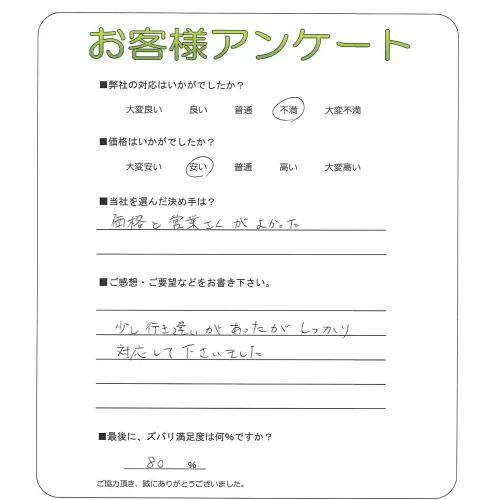 お客様アンケート
■弊社の対応はいかがでしたか？
大変良い 良い 普通 不満 大変不満
■価格はいかがでしたか？
大変安い 安い 普通 高い 大変高い
■当社を選んだ決め手は？
価格と営業さんがよかった
■ご感想・ご要望などをお書き下さい。
少し行き違いがあったがしっかり
対応して下さいました
■最後に、ズバリ満足度は何%ですか？
80 %
ご協力頂き、誠にありがとうございました。